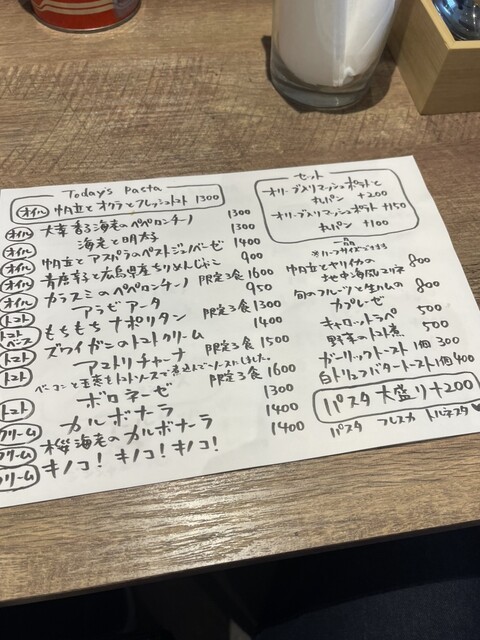 Today's Pasta
オイル 帆立とオクラとフレッシュトマト 1300
オイル 大葉香る海老のペペロンチーノ 1300
オイル 海老と明太子 1300
オイル 帆立とアスパラのペストジェノベーゼ 1400
オイル 青唐辛子と広島県産ちりめんじゃこ 900
オイル カラスミのペペロンチーノ 限定3食 1600
トマト アラビアータ 950
トマトベース もちもちナポリタン 限定3食 1300
トマト ズワイガニのトマトクリーム 1400
トマト アマトリチャーナ 限定3食 1500
ベーコンと玉ねぎをトマトソースで煮込んでソースにしました。
トマト ボロネーゼ 限定3食 1600
クリーム カルボナーラ 1300
クリーム 桜海老のカルボナーラ 1400
クリーム キノコ！キノコ！キノコ！ 1400
セット
オリーブ入りマッシュポテトと
丸パン +200
オリーブ入りマッシュポテト +150
丸パン +100
一品
※ハーフサイズできます
帆立とヤリイカの
地中海風マリネ 800
旬のフルーツと生ハムの
カプレーゼ 800
キャロットラペ 500
野菜のトマト煮 500
ガーリックトースト 1個 300
白トリュフバタートースト 1個 400
パスタ大盛り +200
パスタ フレスカ トバネスタ